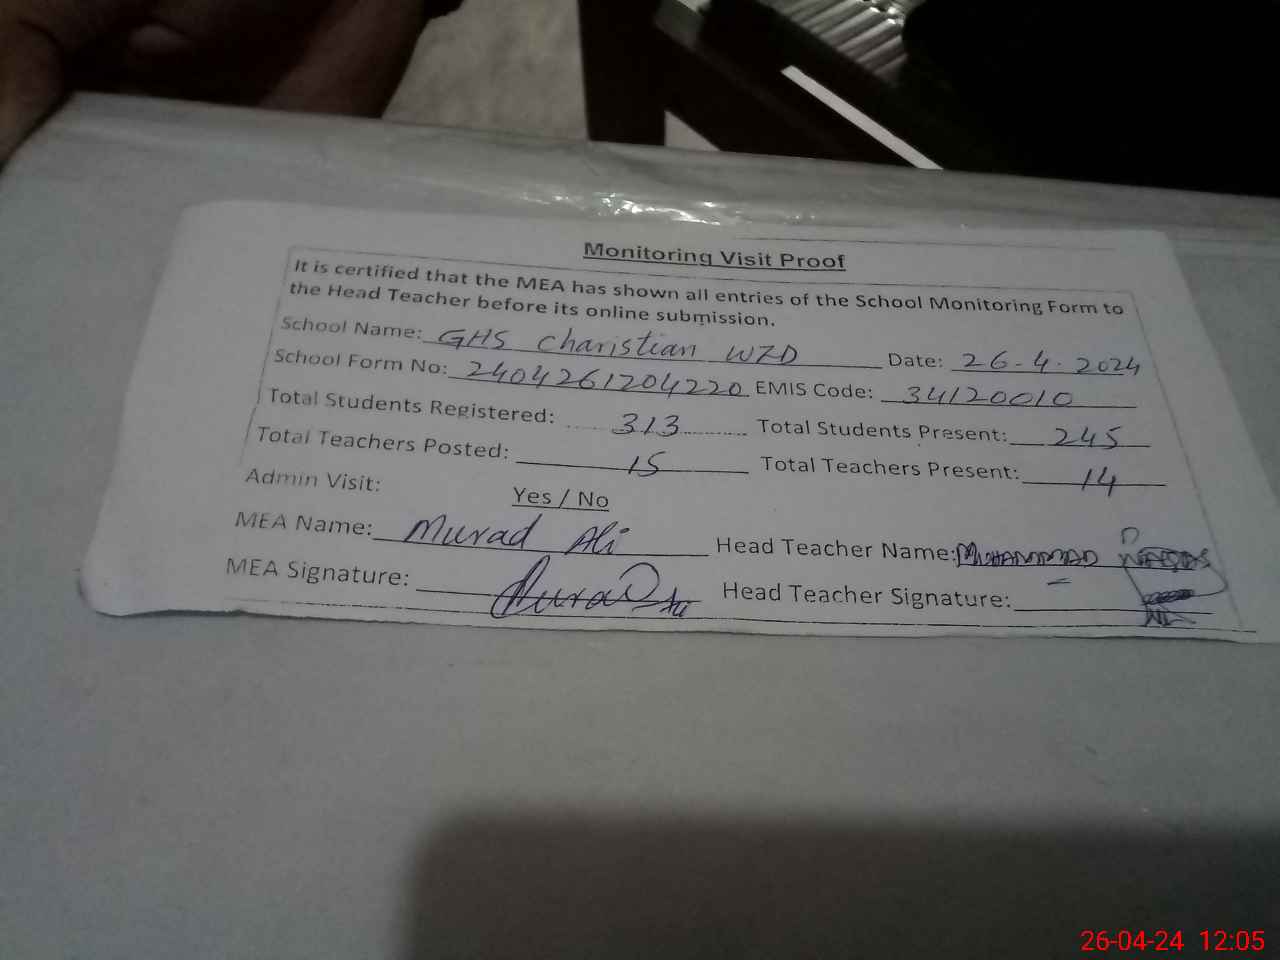 Monitoring Visit Proof
It is certified that the MEA has shown all entries of the School Monitoring Form to
the Head Teacher before its online submission.
School Name: GHS Charistian WZD Date: 26-4-2024
School Form No: 2404261204220 EMIS Code: 34120010
Total Students Registered: 313 Total Students Present: 245
Total Teachers Posted: 15 Total Teachers Present: 14
Admin Visit: Yes / No
MEA Name: Murad Ali Head Teacher Name: MUHAMMAD WAQAS
MEA Signature: Head Teacher Signature:
26-04-24 12:05